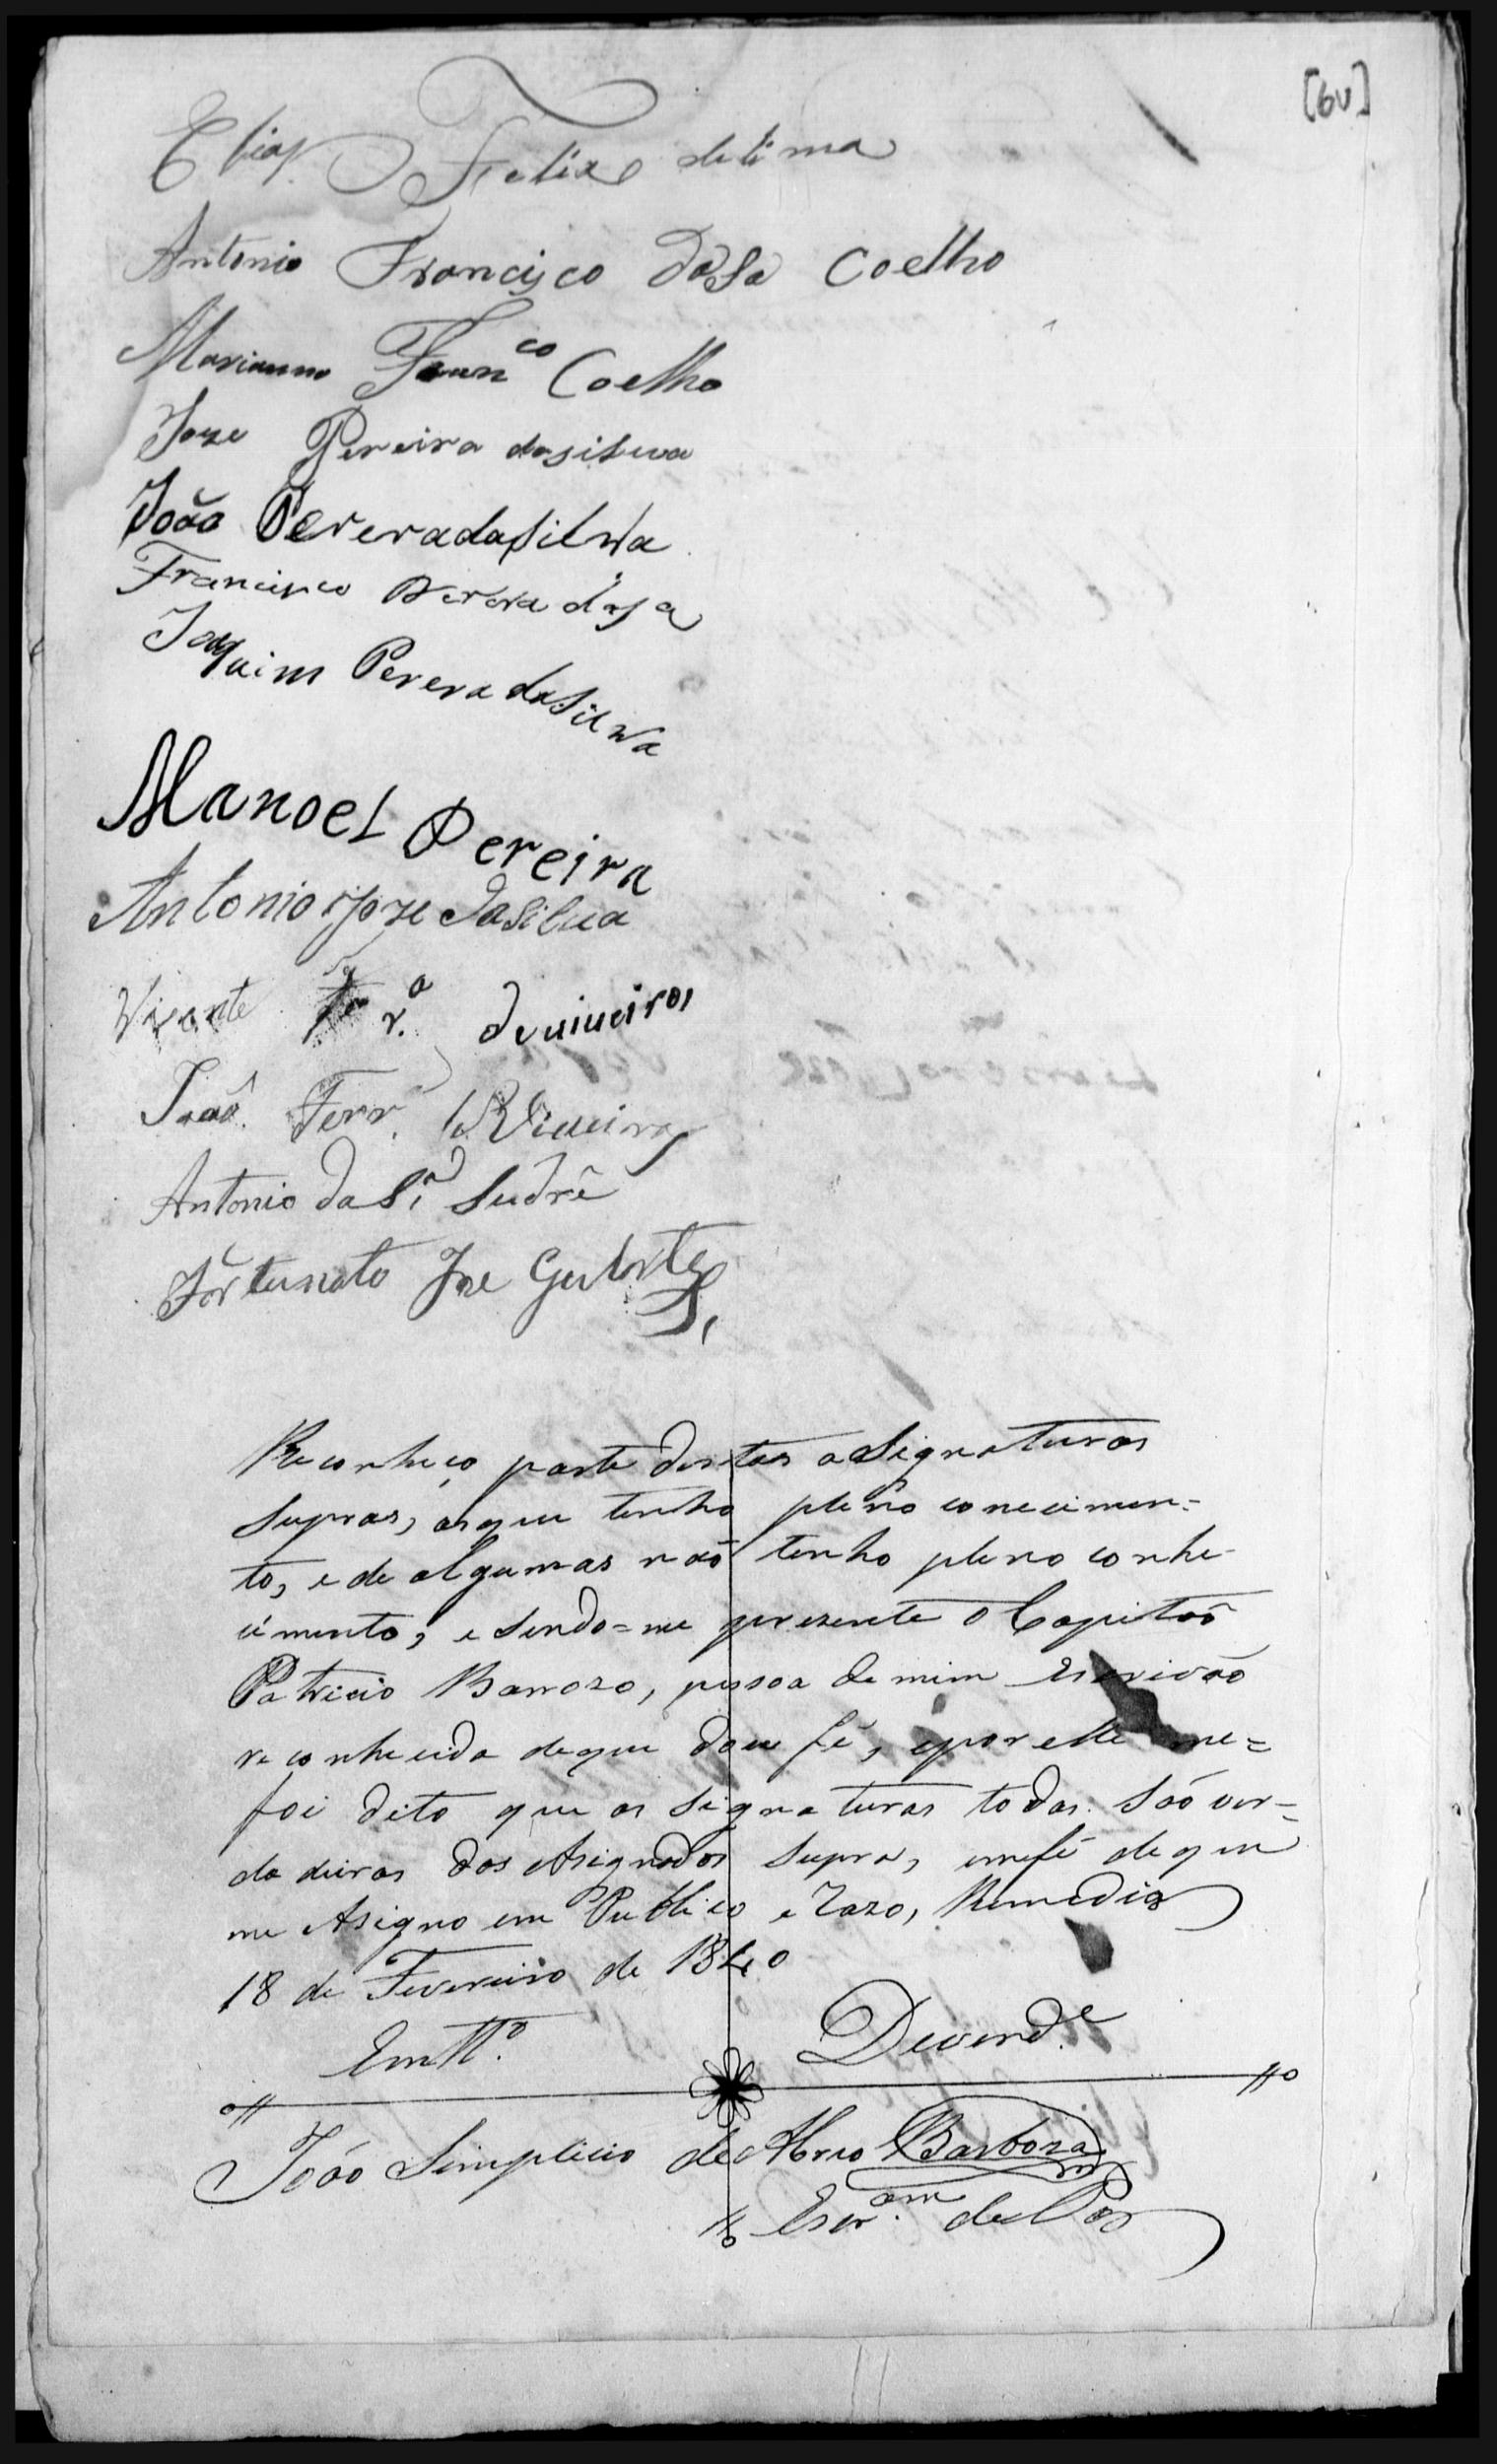 [6v]
Elias Felix delima
Antonio Francisco daSa Coelho
Marianno Franco Coelho
Joze Pereira dasilva
João PereradaSilwa
Francisco Perera dasa
Joaquim Perera daSilwa
Manoel Pereira
Antonio Joze daSilua
Vicente Fr.a deuiueiros
João Ferr. Viueiros
Antonio daS.a Sudrê
Fortunato Joze Gularte
Reconheço parte destas aSignaturas
Supras, asque tenho pleno conecimen=
to, e de algumas não tenho pleno conhe-
cimento, e Sendo=me prezente o Capitaõ
Patricio Barrozo, pessoa de mim Escrivão
reconhecida deque dou fé, eporelle me=
foi dito que as Signaturas todas São ver=
dadeiras dos Asignados Supra, emfé deque
me Asigno em Publico e Razo, Remedios
18 de Fevereiro de 1840
EmTt.o Deverd.e
João Simplicio de Abreo Barboza
Escr.am de Paz